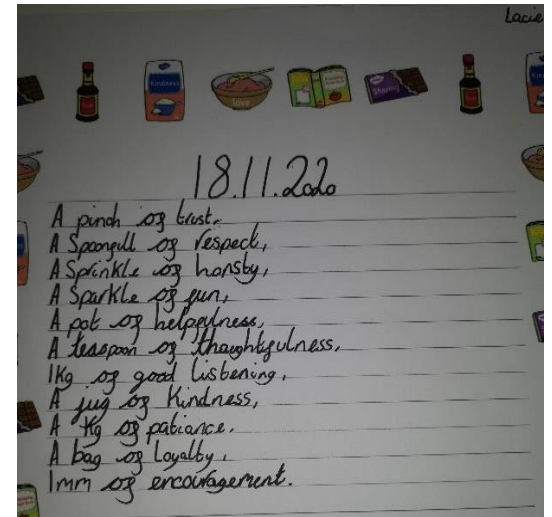 Lacie
Kindness
love
Sharing
18.11.2020
A pinch of trust,
A Spoonfull of respect,
A Sprinkle of honsty,
A Sparkle of fun,
A pot of helpfulness,
A teaspoon of thaughtfulness,
1Kg of good listening,
A jug of Kindness,
A Kg of patiance.
A bag of Loyalty,
1mm of encouragement.